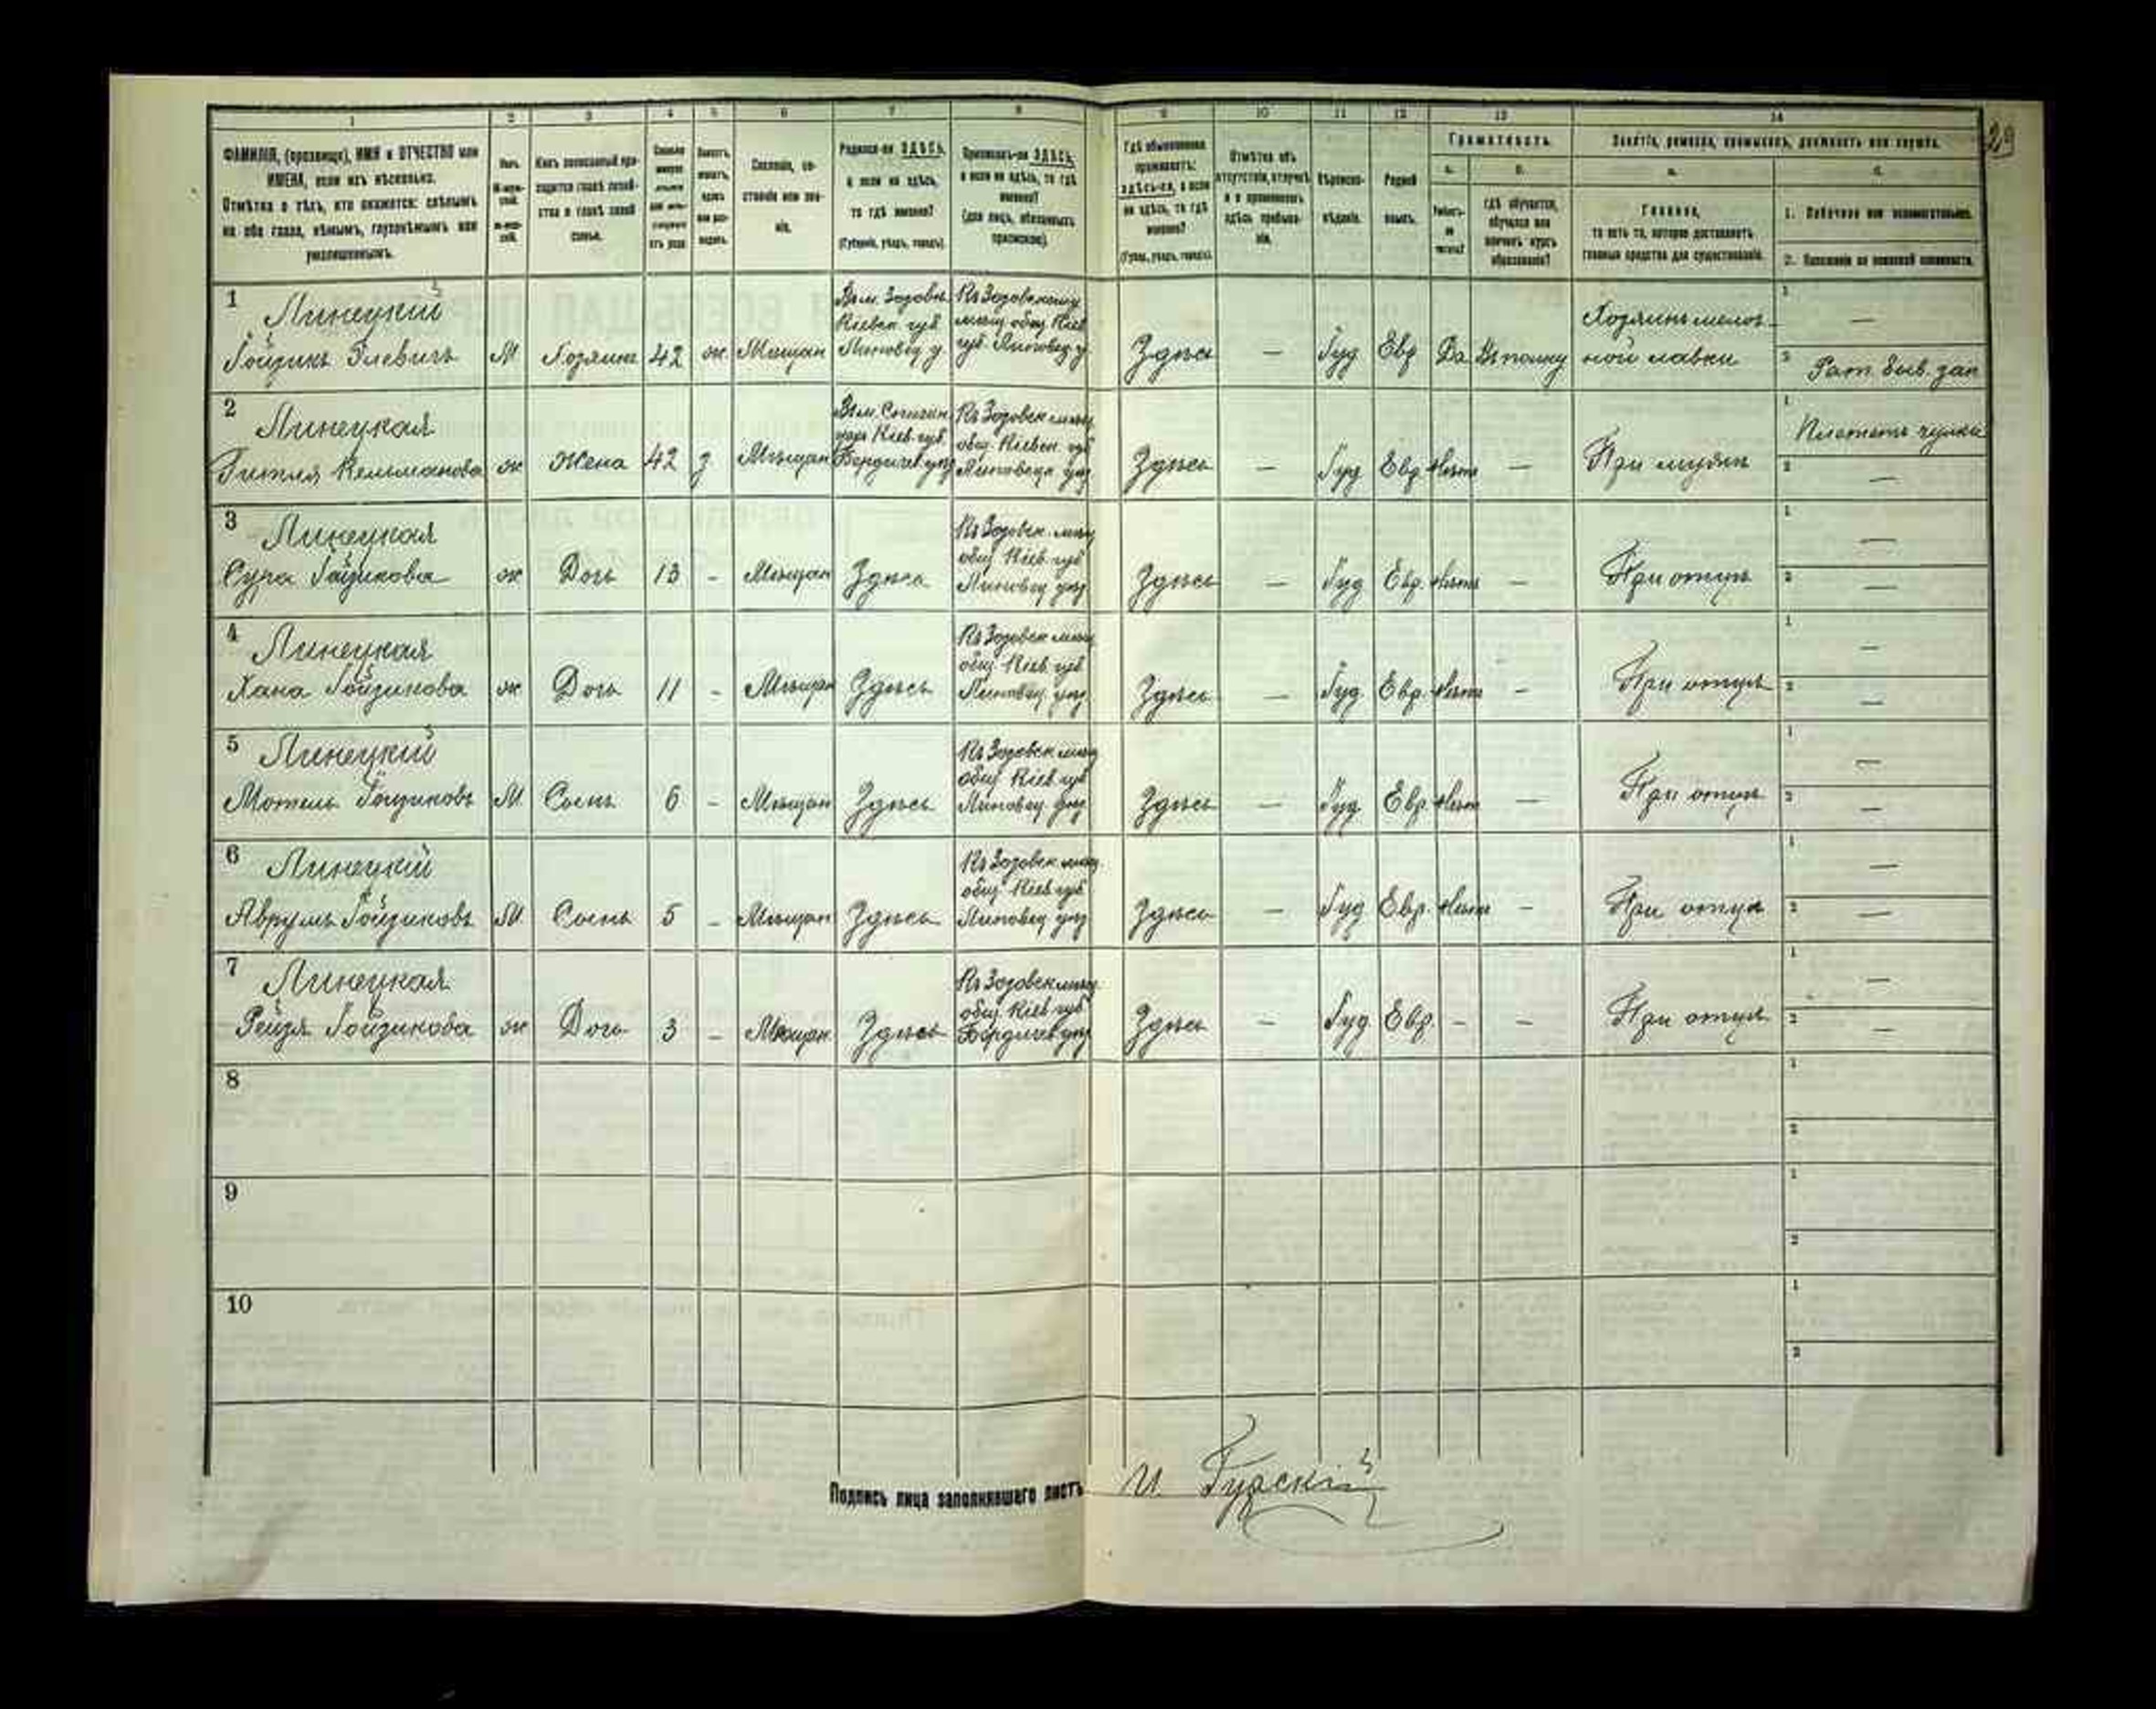 1 2 3 4 5 6 7 8 9 10 11 12 13 14
29
ФАМИЛІЯ, (прозвище), ИМЯ и ОТЧЕСТВО или
ИМЕНА, если ихъ нѣсколько.
Отмѣтка о тѣхъ, кто окажется: слѣпымъ
на оба глаза, нѣмымъ, глухонѣмымъ или
умалишеннымъ.
Полъ.
Какъ записанный при-
ходится главѣ хозяй-
ства и главѣ своей
семьи.
Сословіе, со-
стояніе или зва-
ніе.
Родился-ли ЗДѢСЬ,
а если не здѣсь,
то гдѣ именно?
(Губернія, уѣздъ, городъ).
Приписанъ-ли ЗДѢСЬ,
а если не здѣсь, то гдѣ
именно?
(для лицъ, обязанныхъ
припискою).
Гдѣ обыкновенно
проживаетъ:
здѣсь-ли, а если
не здѣсь, то гдѣ
именно?
(Губер., уѣздъ, городъ).
Отмѣтка объ
отсутствіи, отлучкѣ
и о временномъ
здѣсь пребыва-
ніи.
Вѣроиспо-
вѣданіе.
Родной
языкъ.
Грамотность.
а.
Умѣетъ-
ли
читать?
б.
гдѣ обучается,
обучался или
кончилъ курсъ
образованія?
Занятіе, ремесло, промыселъ, должность или служба.
а.
Главное,
то есть то, которое доставляетъ
главныя средства для существованія.
б.
1. Побочное или вспомогательное.
2. Положеніе по воинской повинности.
1 Линецкій
Гойзикъ Элевичъ М Хозяинъ 42 ж Мѣщан
Въ м. Зозовѣ
Кіевск губ
Липовец у.
Къ Зозовскому
мѣщ общ Кіев
губ. Липовец у.
Здѣсь — Іуд Евр Да
Хозяинъ мелоч-
ной лавки
1 —
2
2 Линецкая
Гитля Кельманова ж Жена 42 з Мѣщан
Бердичев уѣз
Къ Зозовск мѣщ
общ. Кіевск губ
Липовецк уѣз
Здѣсь — Іуд Евр Нѣтъ — При мужѣ
1 Плететъ чулки
2 —
3 Линецкая
Сура Гойзикова ж Дочь 13 - Мѣщан Здѣсь
Къ Зозовск. мѣщ
общ Кіев. губ
Липовец уѣз
Здѣсь — Іуд Евр. Нѣтъ — При отцѣ
1 —
2 —
4 Линецкая
Хана Гойзикова ж Дочь 11 - Мѣщан Здѣсь
Къ Зозовск мѣщ
общ Кіев губ
Липовец уѣз
Здѣсь — Іуд Евр. Нѣтъ — При отцѣ
1 —
2 —
5 Линецкій
Мотель Гойзиковъ М Сынъ 6 - Мѣщан Здѣсь
Къ Зозовск мѣщ
общ Кіев губ
Липовец уѣз
Здѣсь — Іуд Евр Нѣтъ — При отцѣ
1 —
2 —
6 Линецкій
Аврумъ Гойзиковъ М Сынъ 5 - Мѣщан Здѣсь
Къ Зозовск мѣщ
общ Кіев губ
Липовец уѣз
Здѣсь — Іуд Евр. Нѣтъ — При отцѣ
1 —
2 —
7 Линецкая
Рейзя Гойзикова ж Дочь 3 - Мѣщан Здѣсь
Къ Зозовск мѣщ
общ Кіев губ
Бердичев уѣз
Здѣсь — Іуд. Евр. - — При отцѣ
1 —
2 —
8
1
2
9
1
2
10
1
2
Подпись лица заполнявшаго листъ